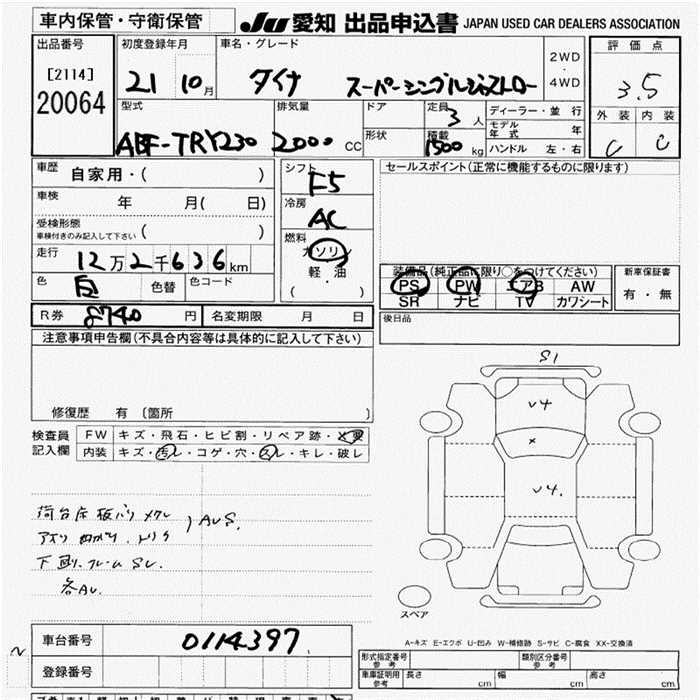 車内保管・守衛保管
JU 愛知 出品申込書 JAPAN USED CAR DEALERS ASSOCIATION
出品番号 初度登録年月 車名・グレード 2WD・4WD 評価点
[2114] 20064 21 10月 ダイナ スーパーシングルジャストロー 3.5
外装 内装
C C
型式 排気量 ドア 定員 3人 ディーラー・並行
ABF-TRY230 2000 CC 形状 積載 1500kg モデル年式 年
ハンドル 左・右
車歴 自家用・( ) シフト F5 セールスポイント(正常に機能するものに限ります)
車検 年 月( 日) 冷房 AC
受検形態 車検付きのみ記入して下さい ( )
燃料 ガソリン 軽・油 ( )
走行 12万2千636km
装備品(純正品に限り○をつけてください) 新車保証書
色 白 色替 色コード
PS PW エアB AW 有・無
SR ナビ TV カワシート
R券 8740円 名変期限 月 日 後日品
注意事項申告欄(不具合内容等は具体的に記入して下さい)
修復歴 有 〔箇所 〕
検査員記入欄 FW キズ・飛石・ヒビ割・リペア跡・×要
内装 キズ・汚レ・コゲ・穴・スレ・キレ・破レ
S1
V4
×
V4.
荷台床板バリ メクレ
アオリ曲がり、 , AUS.
下回り、フレーム SU.
各AU.
スペア
車台番号 0114397
登録番号
A-キズ E-エクボ U-凹み W-補修跡 S-サビ C-腐食 XX-交換済
形式指定番号 参考 類別区分番号 参考
車庫証明用 参考 長さ cm 幅 cm 高さ cm